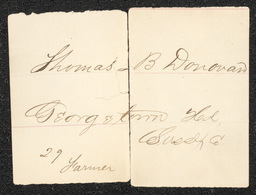 Thomas B Donovan
Georgetown Del
Sussex C
29
Farmer